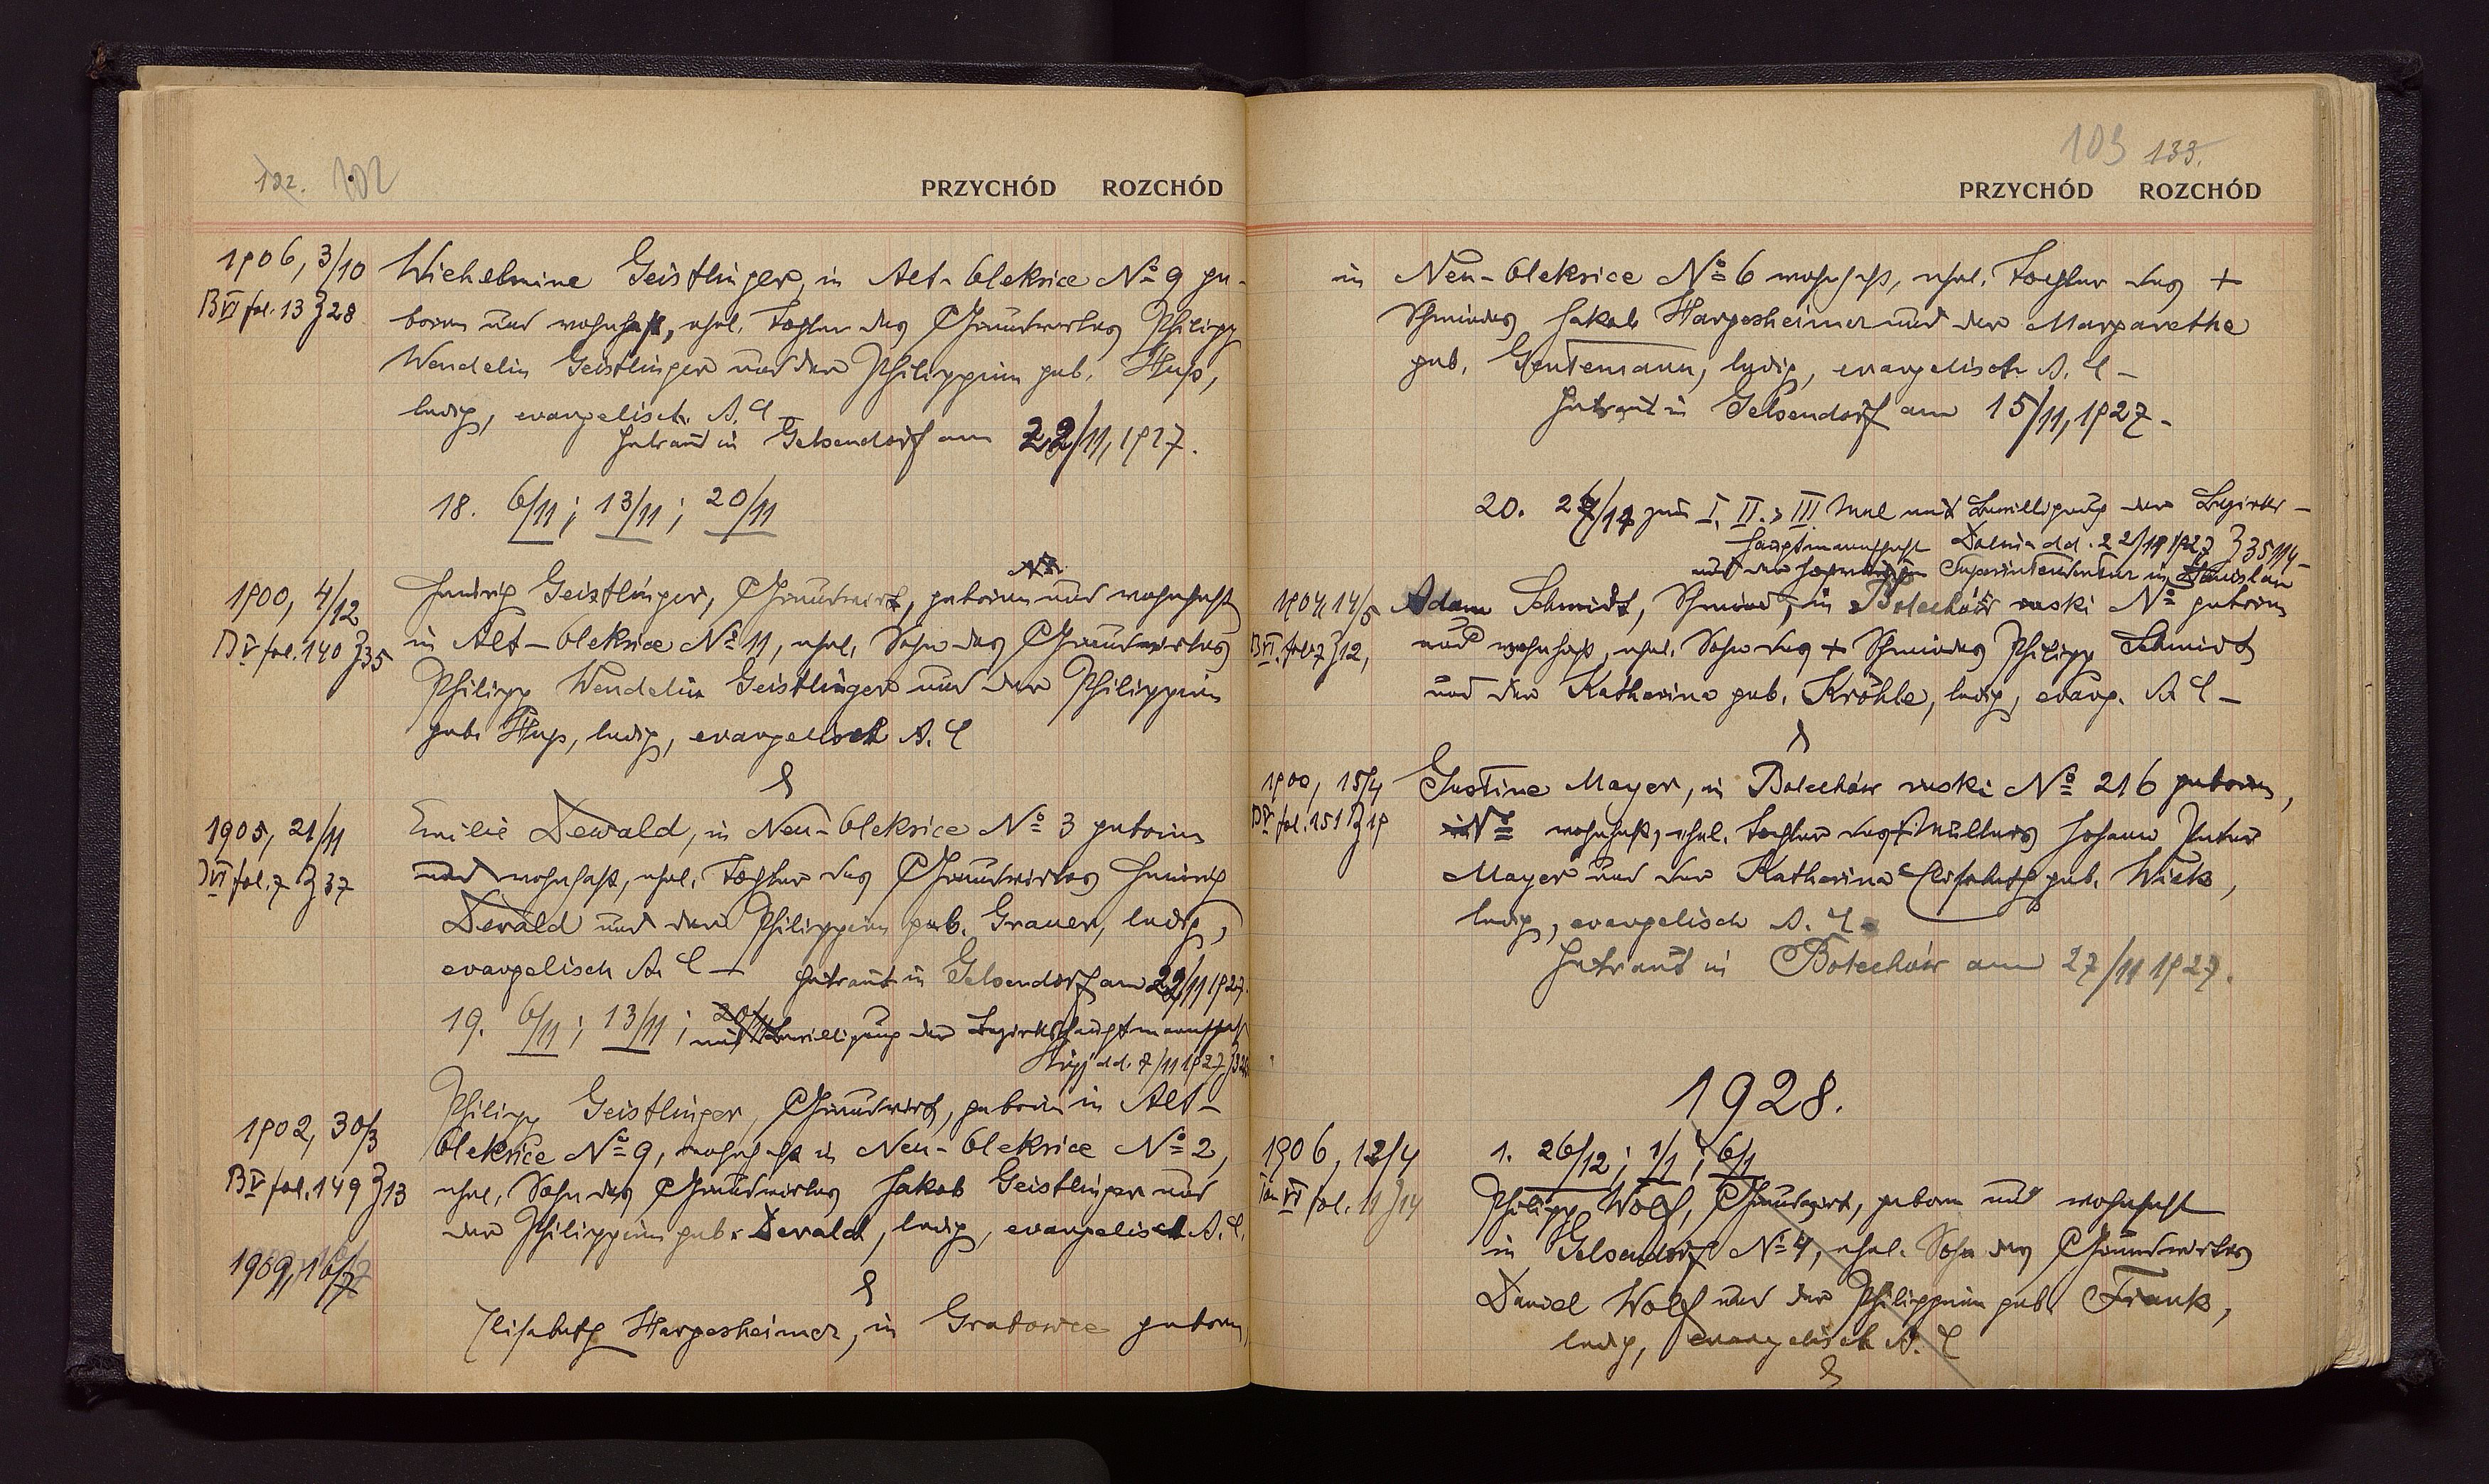 132. 102
PRZYCHÓD ROZCHÓD
1906, 3/10
B VI fol. 13 Z 28
Wichelmine Geistlinger, in Alt-Oleksice No 9 ge-
boren und wohnhaft, ehel. Tochter des Grundwirtes Philipp
Wendelin Geistlinger und der Philippine geb. Hup,
ledig, evangelisch A. C –
Getraut in Gelsendorf am 22/11, 1927.
18. 6/11; 13/11; 20/11
1900, 4/12
B V fol. 140 Z 35
Ludwig Geistlinger, Grundwirt, geboren und wohnhaft
in Alt-Oleksice No 11, ehel. Sohn des Grundwirtes
Philipp Wendelin Geistlinger und der Philippine
geb. Hup, ledig, evangelisch A. C
&
1905, 21/11
VI fol. 7 Z 37
Emilie Dewald, in Neu-Oleksice No 3 geboren
und wohnhaft, ehel. Tochter des Grundwirtes Heinrich
Dewald und der Philippine geb. Grauer, ledig,
evangelisch A. C – Getraut in Gelsendorf am 22/11 1927.
19. 6/11; 13/11; 20/11 mit Bewilligung der Bezirkshauptmannschaft
Stryj dd. 7/11 1927
1902, 30/3
B V fol. 149 Z 13
Philipp Geistlinger, Grundwirt, geboren in Alt-
Oleksice No 9, wohnhaft in Neu-Oleksice No 2,
ehel. Sohn des Grundwirtes Jakob Geistlinger und
der Philippine geb. Dewald, ledig, evangelisch A. C.
&
1909, 16/7
Elisabeth Hargesheimer, in Gratowce geboren,
103 133.
PRZYCHÓD ROZCHÓD
in Neu-Oleksice No 6 wohnhaft, ehel. Tochter des +
Schmiedes Jakob Hargesheimer und der Margarethe
geb. Gentemann, ledig, evangelisch A. C –
Getraut in Gelsendorf am 15/11, 1927 –
20. 27/11 zum I, II., III Mal mit Bewilligung der Bezirks-
hauptmannschaft Dolina dd. 22/11 1927 Z 35114
und der Superintendentur in Stanislau
1904, 14/5
B VI. fol. 7 Z 12,
Adam Schmidt, Schmied, in Bolechów ruski No geboren
und wohnhaft, ehel. Sohn des + Schmiedes Philipp Schmidt
und der Katharina geb. Kröhle, ledig, evang. A C –
&
1900, 15/4
B V fol. 151 Z 19
Justine Mayer, in Bolechów ruski No 216 geboren,
in No wohnhaft, ehel. Tochter des + Müllers Johann Peter
Mayer und der Katharina Elisabeth geb. Wick,
ledig, evangelisch A. C.
Getraut in Bolechów am 27/11 1927.
1928.
1. 26/12; 1/1; 6/1
1906, 12/4
VI fol. 11 Z 14
Philipp Wolf, Grundwirt, geboren und wohnhaft
in Gelsendorf No 4, ehel. Sohn des Grundwirtes
Daniel Wolf und der Philippine geb. Frank,
ledig, evangelisch A. C
&